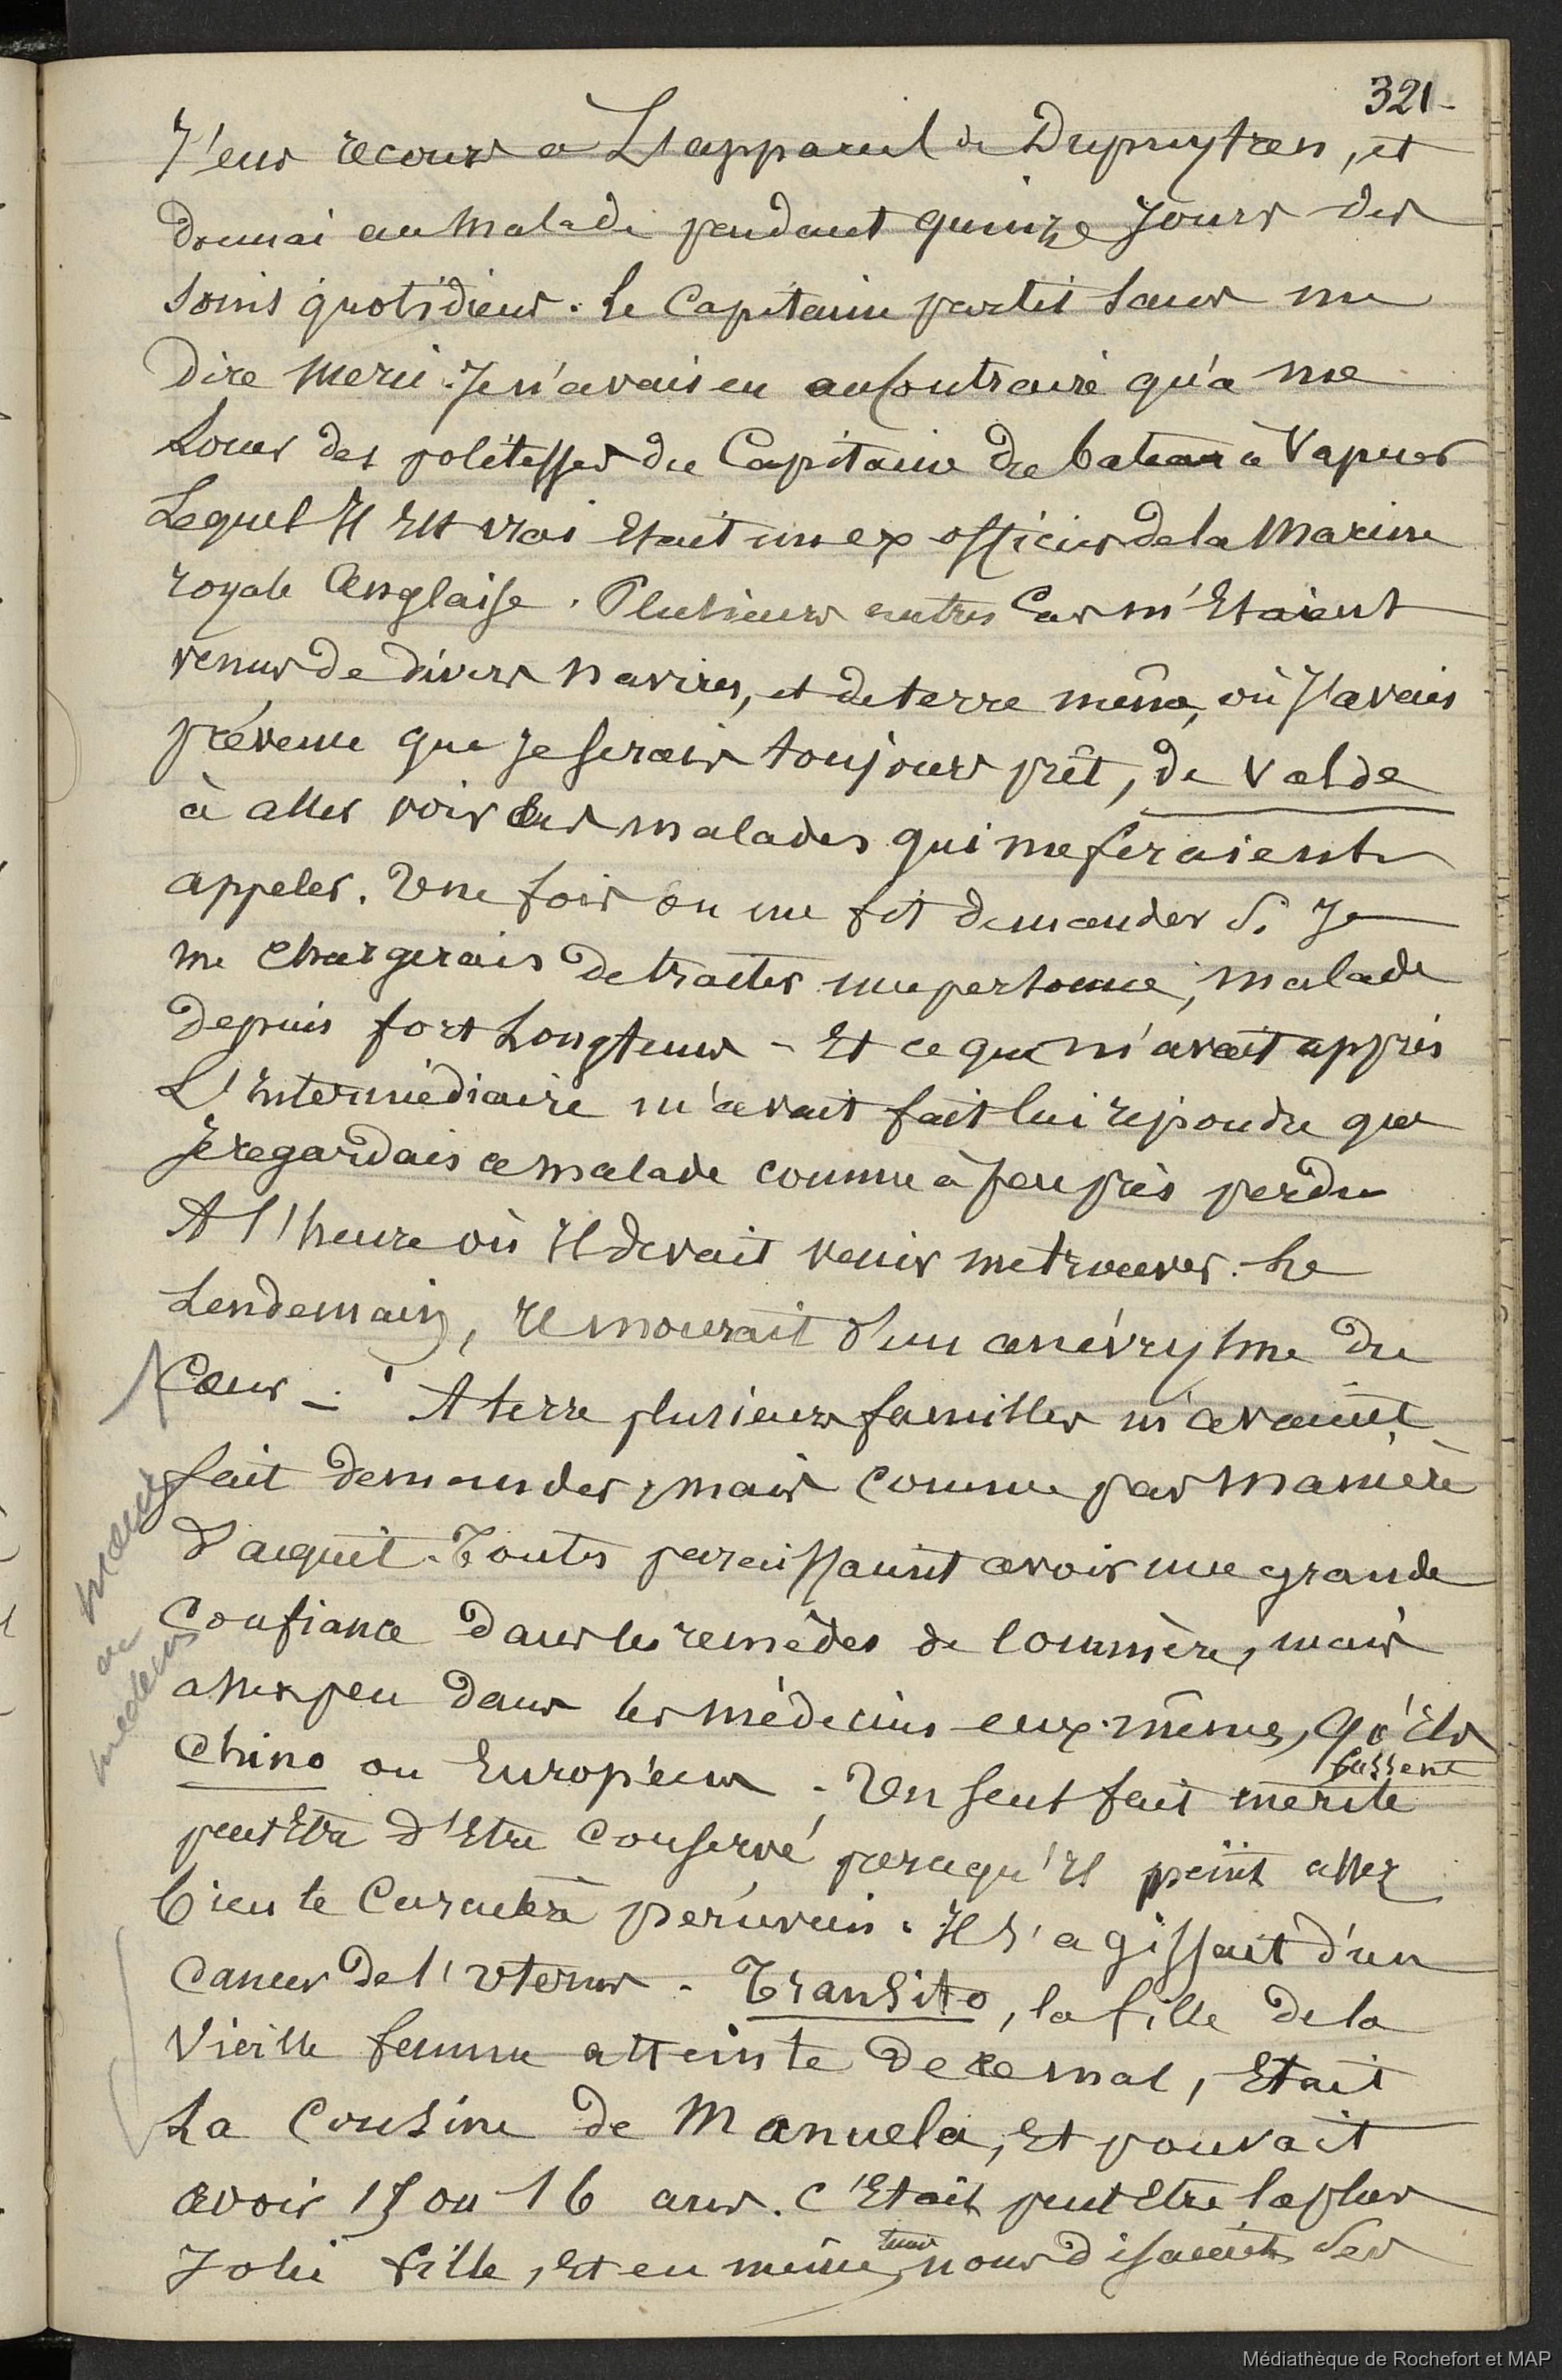 321-
J'eus recours a L'appareil de Dupuytren, et
donnai au malade pendant quinze Jours des
soins quotidiens. Le Capitaine partit sans me
dire merci. Je n'avais eu au Contraire qu'a me
Louer des politesses du Capitaine du bateau à Vapeur
Lequel Il Est vrai Etait un ex officier de la Marine
royale Anglaise. Plusieurs autres Cas m'Etaient
venus de divers navires, et de terre même, où J'avais
prévenu que Je serais toujours prêt, de valde
à aller voir les malades qui me feraient
appeler. Une fois on me fit demander Si Je
me chargerais de traiter une personne, malade
depuis fort Longtems - Et ce que m'avait appris
L'Intermédiaire m'avait fait lui répondre que
Je regardais ce malade comme à peu près perdu
A l'heure où Il devait venir me trouver. Le
Lendemain, Il mourait d'un anévrysme du
Cœur -. A terre plusieurs familles m'avaient
fait demander, mais comme par manière
d'acquit. Toutes paraissaient avoir une grande
Confiance dans les remèdes de commère, mais
assez peu dans les médecins eux-mêmes, qu'Ils
fussent
Chino ou Européens. Un seul fait mérite
peut Etre d'Etre Conservé parcequ'Il peint assez
bien le Caractère péruvien. Il s'agissait d'un
Cancer de l'Uterus. Transito, la fille de la
Vieille femme atteinte de ce mal, Etait
La Cousine de Manuela, Et pouvait
avoir 15 ou 16 ans. C'Etait peut Etre la plus
Jolie fille, Et en même tems, nous disaient Ses
ou
médecins
Médiathèque de Rochefort et MAP